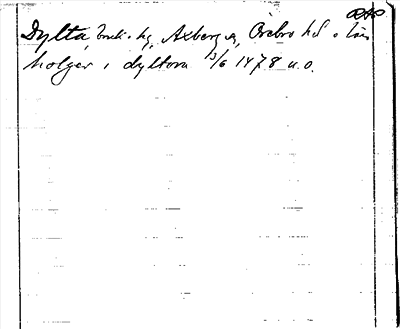 Dylta, bruk o. hg, Axbergs sn, Örebro hd o. län
holger i dyltom 13/6 1478 u.o.